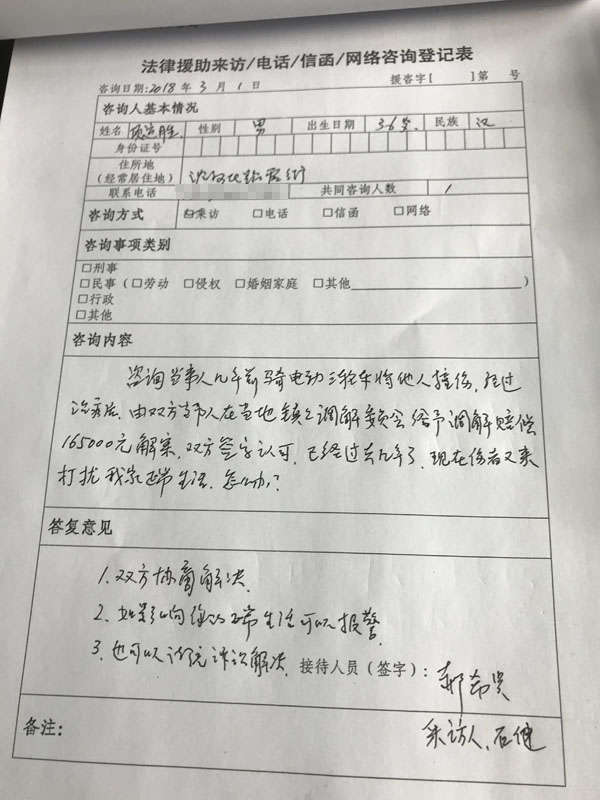 法律援助来访/电话/信函/网络咨询登记表
咨询日期:2018 年 3 月 1 日 援咨字[ ]第 号
咨询人基本情况
姓名 性别 男 出生日期 36岁 民族 汉
身份证号
住所地
(经常居住地)
联系电话 共同咨询人数 1
咨询方式 来访 □电话 □信函 □网络
咨询事项类别
□刑事
□民事(□劳动 □侵权 □婚姻家庭 □其他 )
□行政
□其他
咨询内容
咨询当事人几年前骑电动三轮车将他人撞伤,经过
治疗后,由双方当事人在当地镇调解委员会给予调解赔偿
165000元解案,双方签字认可,已经过去几年了,现在伤者又来
打扰我家正常生活,怎么办?
答复意见
1.双方协商解决.
2.如果影响你的正常生活可以报警
3.也可以诉讼解决. 接待人员(签字):
备注: 来访人:石健